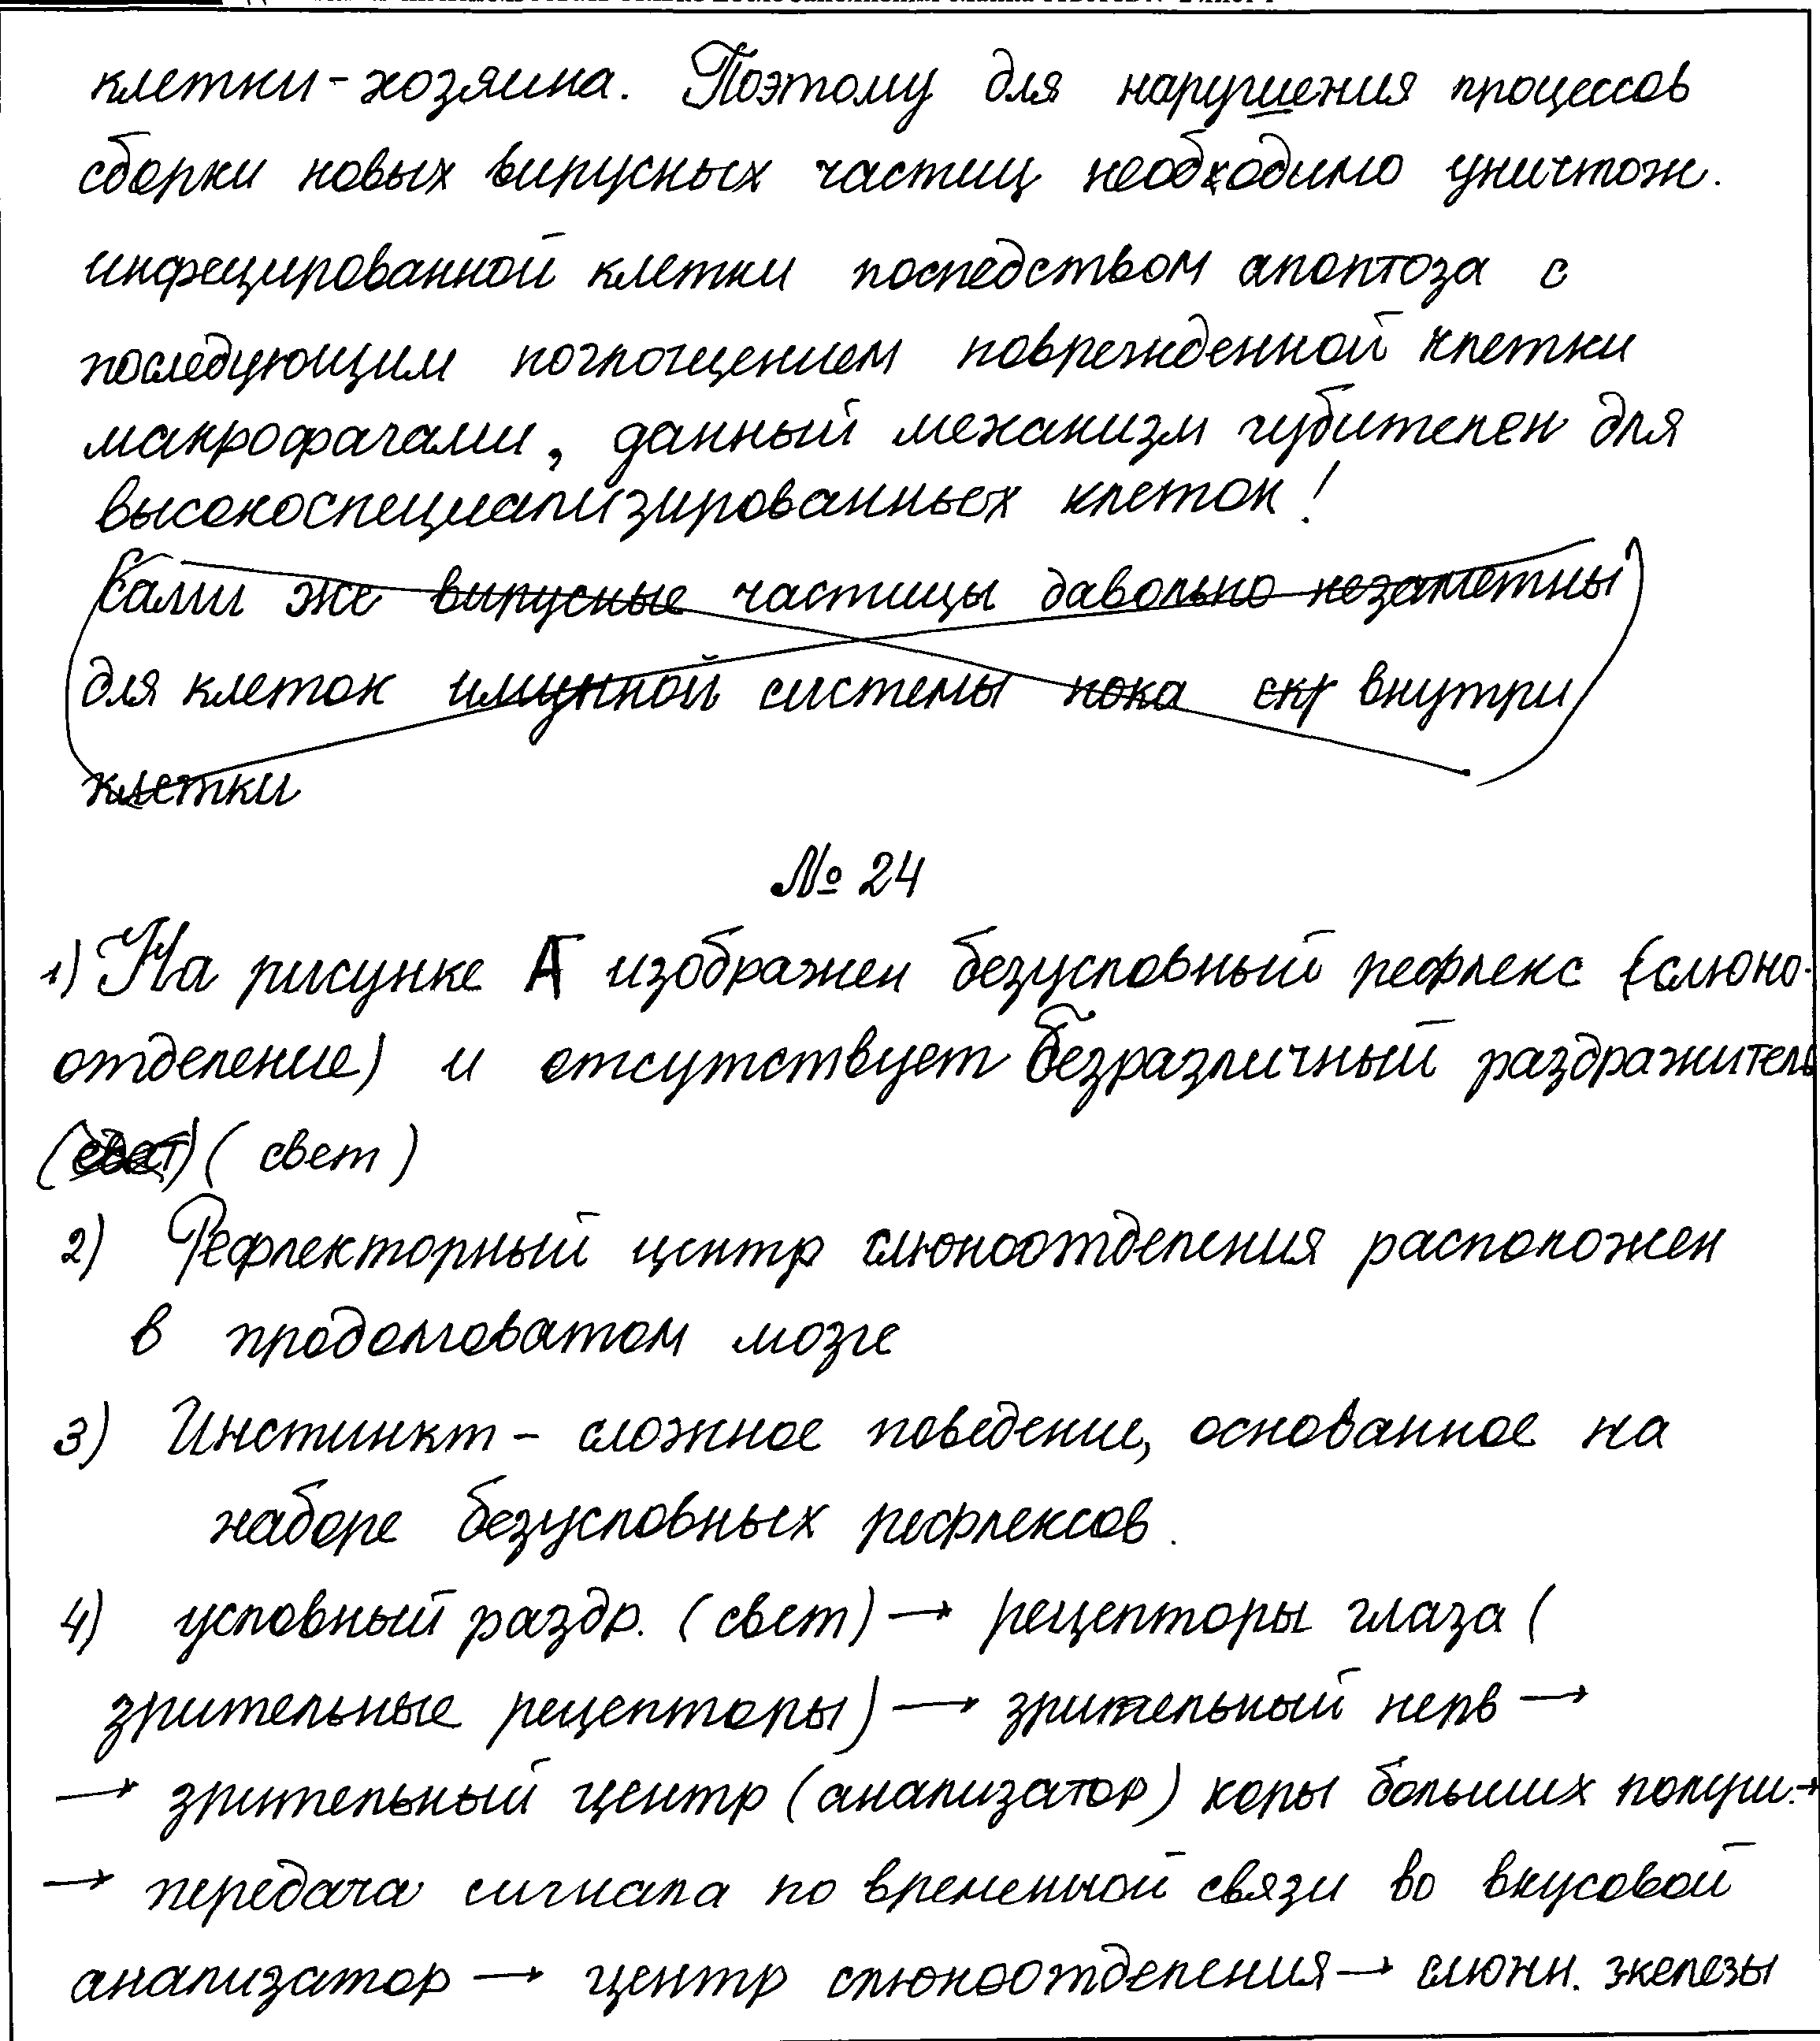 клетки-хозяина. Поэтому для нарушения процессов
сборки новых вирусных частиц необходимо уничтож.
инфецированной клетки поспедством апоптоза с
последующим поглощением поврежденной клетки
макрофагами, данный механизм губителен для
высокоспециализированных клеток!
Сами же вирусные частицы давольно незаметны
для клеток имунной системы пока скр внутри
клетки
№ 24
1) На рисунке А изображен безусловный рефлекс (слюно-
отделение) и отсутствует безразличный раздражитель
(свет)
2) Рефлекторный центр слюноотделения расположен
в продолговатом мозге
3) Инстинкт - сложное поведение, основанное на
наборе безусловных рефлексов.
4) условный раздр. (свет) → рецепторы глаза (
зрительные рецепторы) → зрительный нерв →
→ зрительный центр (анализатор) коры больших полуш. →
→ передача сигнала по временной связи во вкусовой
анализатор → центр слюноотделения → слюнн. железы